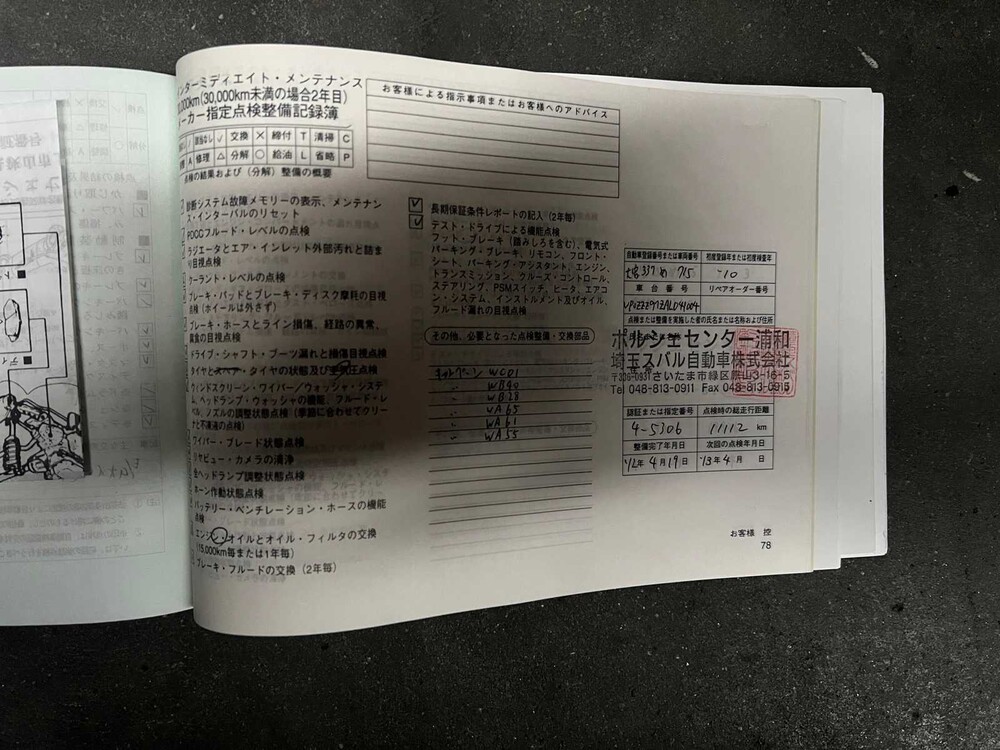 ンターミディエイト・メンテナンス
0,000km(30,000km未満の場合2年目)
ーカー指定点検整備記録簿
交換 × 締付 T 清掃 C
A 修理 △ 分解 ○ 給油 L 省略 P
点検の結果および(分解)整備の概要
診断システム故障メモリーの表示、メンテナン
ス・インターバルのリセット
PDCCフルード・レベルの点検
ラジエータとエア・インレット外部汚れと詰ま
り目視点検
クーラント・レベルの点検
ブレーキ・パッドとブレーキ・ディスク摩耗の目視
点検(ホイールは外さず)
ブレーキ・ホースとライン損傷、経路の異常、
腐食の目視点検
ドライブ・シャフト・ブーツ漏れと損傷目視点検
タイヤとスペア・タイヤの状態及び空気圧点検
ウィンドスクリーン・ワイパー/ウォッシャ・システ
ム、ヘッドランプ・ウォッシャの機能、フルード・レ
ベル、ノズルの調整状態点検(季節に合わせてクリー
ナと不凍液の点検)
ワイパー・ブレード状態点検
リヤビュー・カメラの清浄
全ヘッドランプ調整状態点検
ホーン作動状態点検
バッテリー・ベンチレーション・ホースの機能
点検
エンジン・オイルとオイル・フィルタの交換
(15,000km毎または1年毎)
ブレーキ・フルードの交換(2年毎)
お客様による指示事項またはお客様へのアドバイス
長期保証条件レポートの記入(2年毎)
テスト・ドライブによる機能点検
フット・ブレーキ(踏みしろを含む)、電気式
パーキング・ブレーキ、リモコン、フロント・
シート、パーキング・アシスタント、エンジン、
トランスミッション、クルーズ・コントロール、
ステアリング、PSMスイッチ、ヒータ、エアコ
ン・システム、インストルメント及びオイル、
フルード漏れの目視点検
その他、必要となった点検整備・交換部品
キャンペーン WC01
〃 WB40
〃 WB28
〃 WA65
〃 WA61
〃 WA55
自動車登録番号または車両番号 初度登録年または初度検査年
337 め 715 '10 3
車台番号 リペアオーダー番号
WP0ZZZ97ZAL041004
点検または整備を実施した者の氏名または名称および住所
ポルシェセンター浦和
埼玉スバル自動車株式会社
さいたま市緑区原山3-16-5
Tel 048-813-0911 Fax 048-813-0915
認証または指定番号 点検時の総走行距離
4-5306 11112 km
整備完了年月日 次回の点検年月日
'12年 4月 19日 '13年 4月 日
お客様 控
78